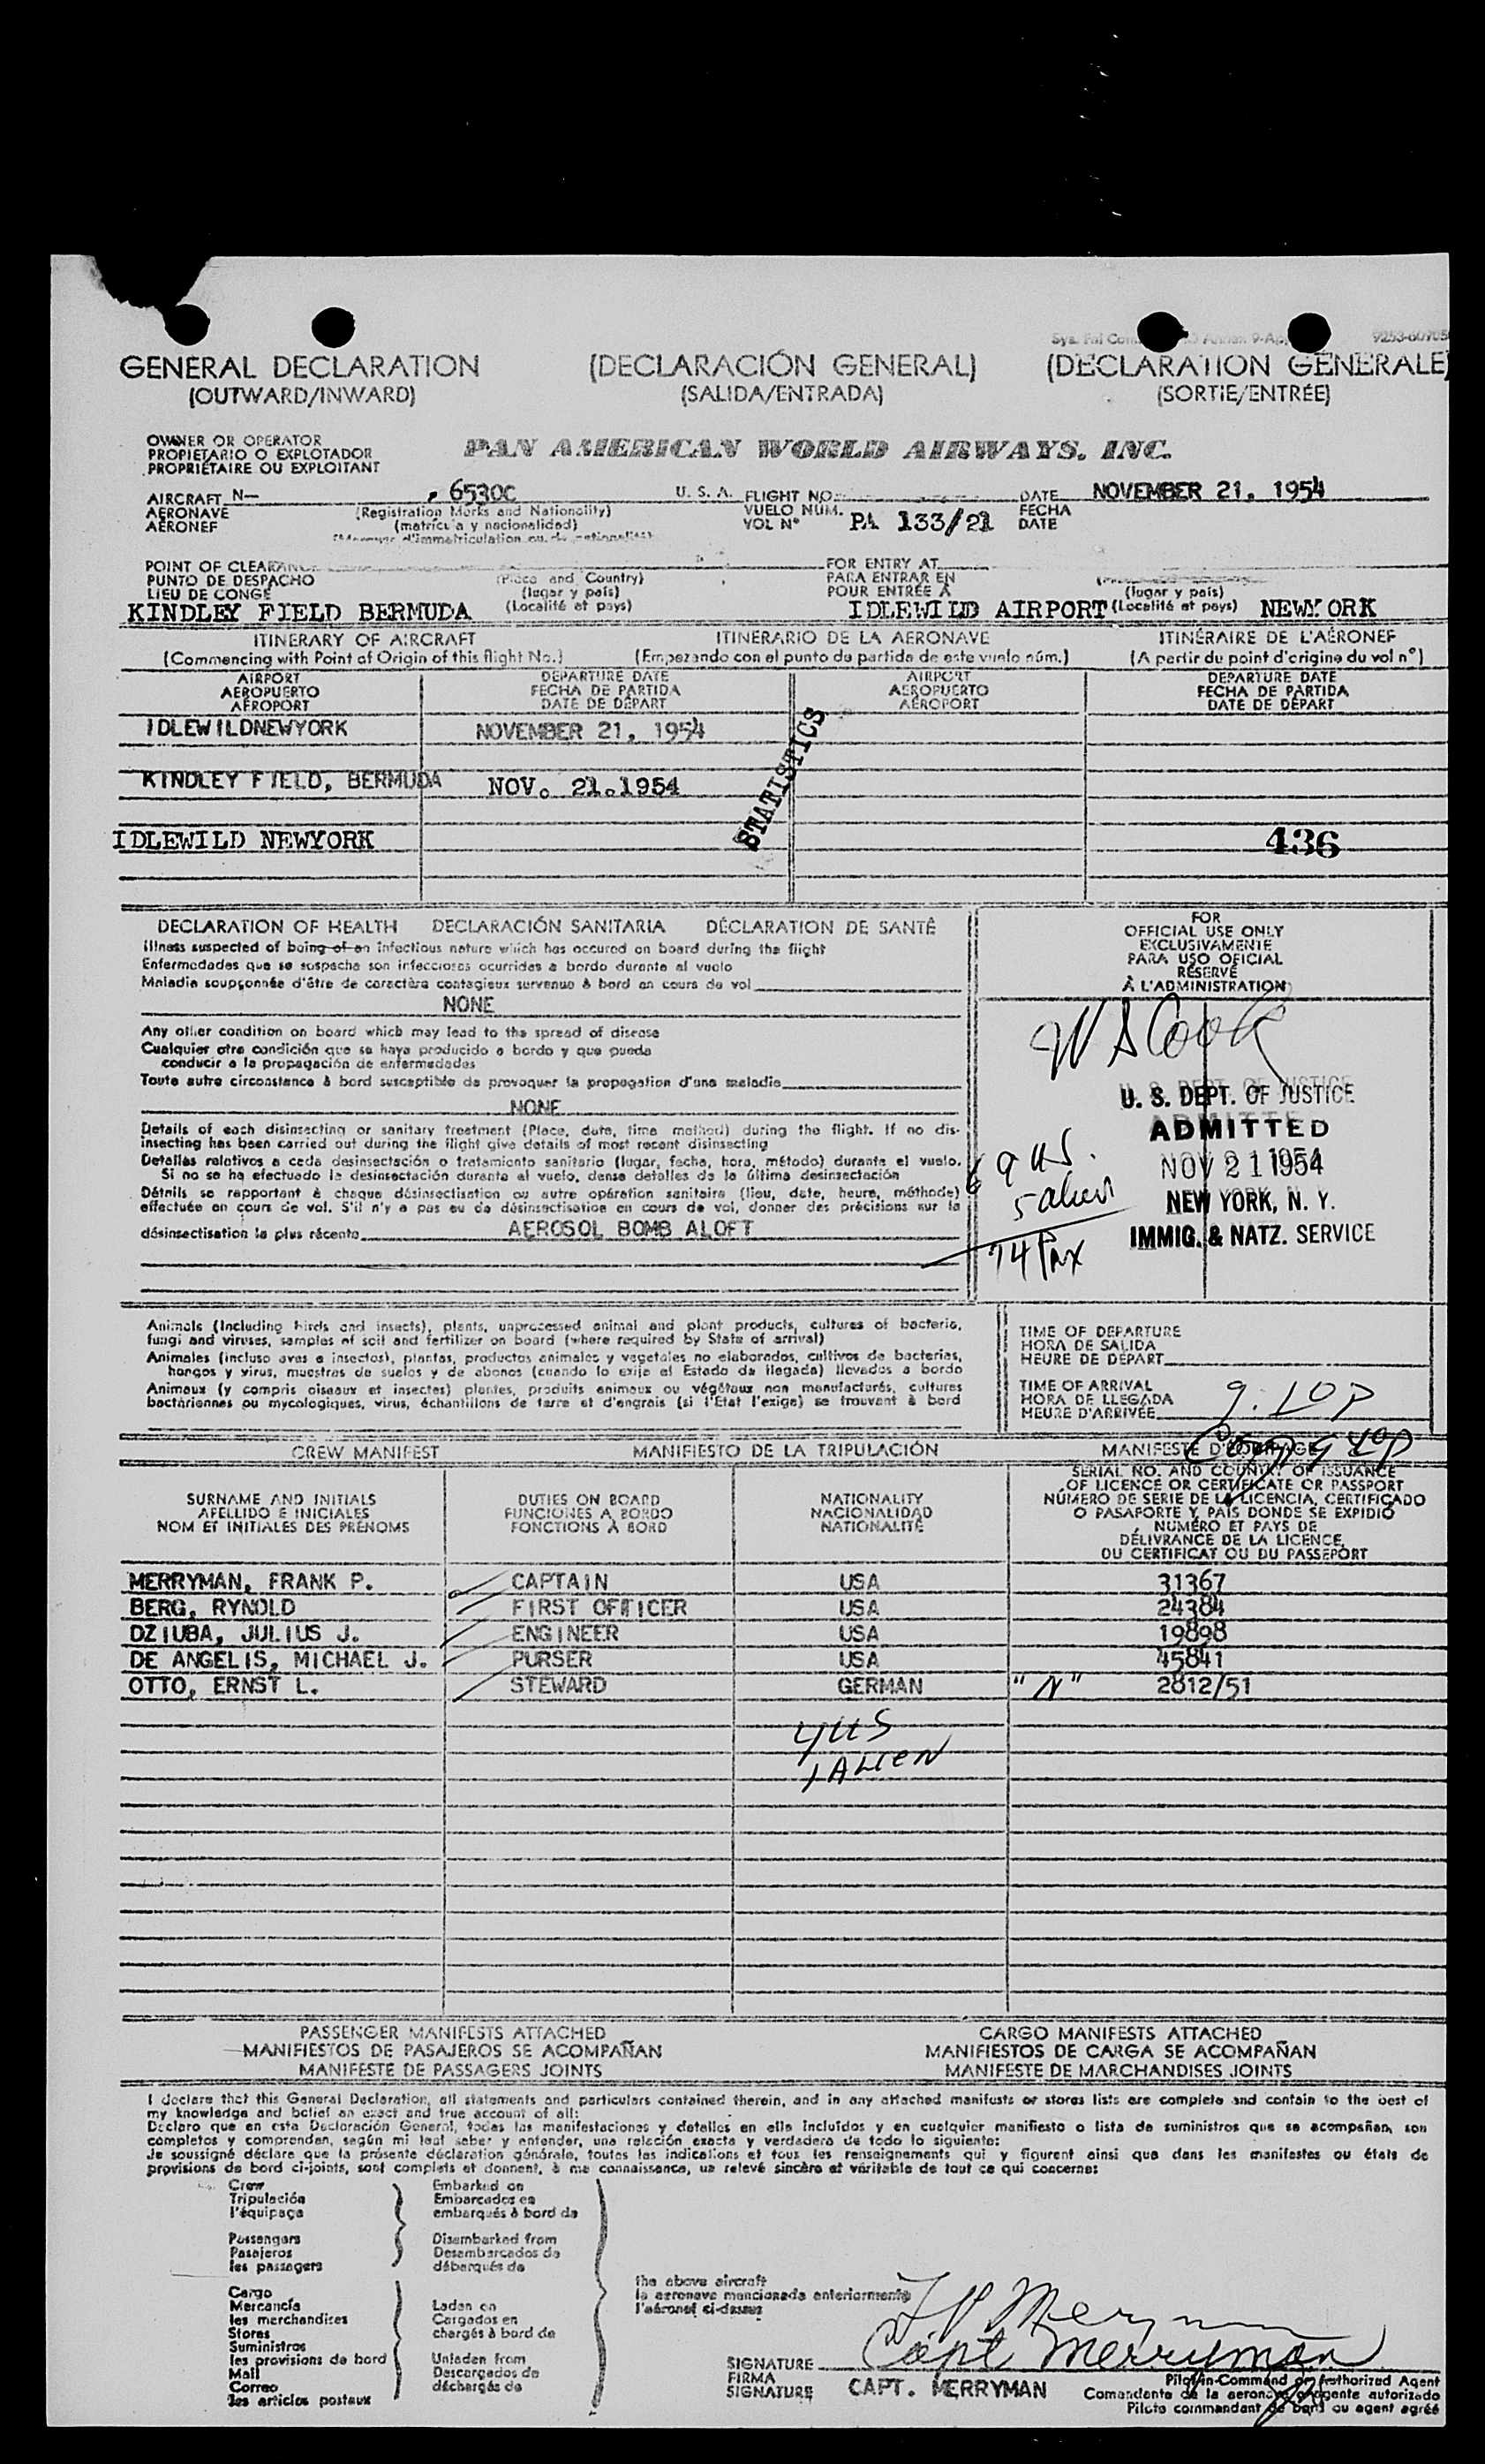 9253-60705
GENERAL DECLARATION (DECLARACIÓN GENERAL) (DECLARATION GÉNÉRALE)
(OUTWARD/INWARD) (SALIDA/ENTRADA) (SORTIE/ENTRÉE)
OWNER OR OPERATOR
PROPIETARIO O EXPLOTADOR
PROPRIÉTAIRE OU EXPLOITANT
PAN AMERICAN WORLD AIRWAYS, INC.
AIRCRAFT N— 6530C U. S. A. FLIGHT NO. DATE NOVEMBER 21, 1954
AERONAVE (Registration Marks and Nationality) VUELO NUM. PA 133/21 FECHA
AÉRONEF (matrícula y nacionalidad) VOL Nº DATE
(Marques d'immatriculation ou de nationalité)
POINT OF CLEARANCE FOR ENTRY AT
PUNTO DE DESPACHO (Place and Country) PARA ENTRAR EN
LIEU DE CONGÉ (lugar y país) POUR ENTRÉE À (lugar y país)
KINDLEY FIELD BERMUDA (Localité et pays) IDLEWILD AIRPORT (Localité et pays) NEWYORK
ITINERARY OF AIRCRAFT ITINERARIO DE LA AERONAVE ITINÉRAIRE DE L'AÉRONEF
(Commencing with Point of Origin of this flight No.) (Empezando con el punto de partida de este vuelo núm.) (A partir du point d'origine du vol nº)
AIRPORT DEPARTURE DATE AIRPORT DEPARTURE DATE
AEROPUERTO FECHA DE PARTIDA AEROPUERTO FECHA DE PARTIDA
AÉROPORT DATE DE DÉPART AÉROPORT DATE DE DÉPART
IDLEWILDNEWYORK NOVEMBER 21, 1954
STATISTICS
KINDLEY FIELD, BERMUDA NOV. 21.1954
IDLEWILD NEWYORK 436
DECLARATION OF HEALTH DECLARACIÓN SANITARIA DÉCLARATION DE SANTÉ
Illness suspected of being of an infectious nature which has occured on board during the flight
Enfermedades que se sospecha son infecciosas ocurridas a bordo durante el vuelo
Maladie soupçonnée d'être de caractère contagieux survenue à bord en cours de vol
NONE
Any other condition on board which may lead to the spread of disease
Cualquier otra condición que se haya producido a bordo y que pueda
conducir a la propagación de enfermedades
Toute autre circonstance à bord susceptible de provoquer la propagation d'une maladie
NONE
Details of each disinsecting or sanitary treatment (Place, date, time method) during the flight. If no dis-
insecting has been carried out during the flight give details of most recent disinsecting
Detalles relativos a cada desinsectación o tratamiento sanitario (lugar, fecha, hora, método) durante el vuelo.
Si no se ha efectuado la desinsectación durante el vuelo, dense detalles de la última desinsectación
Détails se rapportant à chaque désinsectisation ou autre opération sanitaire (lieu, date, heure, méthode)
effectuée en cours de vol. S'il n'y a pas eu de désinsectisation en cours de vol, donner des précisions sur la
désinsectisation la plus récente AEROSOL BOMB ALOFT
FOR
OFFICIAL USE ONLY
EXCLUSIVAMENTE
PARA USO OFICIAL
RÉSERVÉ
À L'ADMINISTRATION
W S Cook
U. S. DEPT. OF JUSTICE
ADMITTED
NOV 21 1954
NEW YORK, N. Y.
IMMIG. & NATZ. SERVICE
69 US.
5 alien
74 Pax
Animals (Including birds and insects), plants, unprocessed animal and plant products, cultures of bacteria,
fungi and viruses, samples of soil and fertilizer on board (where required by State of arrival)
Animales (incluso aves e insectos), plantas, productos animales y vegetales no elaborados, cultivos de bacterias,
hongos y virus, muestras de suelos y de abonos (cuando lo exija el Estado de llegada) llevados a bordo
Animaux (y compris oiseaux et insectes) plantes, produits animaux ou végétaux non manufacturés, cultures
bactériennes ou mycologiques, virus, échantillons de terre et d'engrais (si l'Etat l'exige) se trouvant à bord
TIME OF DEPARTURE
HORA DE SALIDA
HEURE DE DÉPART
TIME OF ARRIVAL
HORA DE LLEGADA
HEURE D'ARRIVÉE
9:10P
CREW MANIFEST MANIFIESTO DE LA TRIPULACIÓN MANIFESTE D'ÉQUIPAGE
SURNAME AND INITIALS
APELLIDO E INICIALES
NOM ET INITIALES DES PRÉNOMS
DUTIES ON BOARD
FUNCIONES A BORDO
FONCTIONS À BORD
NATIONALITY
NACIONALIDAD
NATIONALITÉ
SERIAL NO. AND COUNTRY OF ISSUANCE
OF LICENCE OR CERTIFICATE OR PASSPORT
NÚMERO DE SERIE DE LA LICENCIA, CERTIFICADO
O PASAPORTE Y PAIS DONDE SE EXPIDIÓ
NUMÉRO ET PAYS DE
DÉLIVRANCE DE LA LICENCE,
OU CERTIFICAT OU DU PASSEPORT
MERRYMAN, FRANK P. CAPTAIN USA 31367
BERG, RYNOLD FIRST OFFICER USA 24384
DZIUBA, JULIUS J. ENGINEER USA 19898
DE ANGELIS, MICHAEL J. PURSER USA 45841
OTTO, ERNST L. STEWARD GERMAN "N" 2812/51
4US
1 ALIEN
PASSENGER MANIFESTS ATTACHED CARGO MANIFESTS ATTACHED
MANIFIESTOS DE PASAJEROS SE ACOMPAÑAN MANIFIESTOS DE CARGA SE ACOMPAÑAN
MANIFESTE DE PASSAGERS JOINTS MANIFESTE DE MARCHANDISES JOINTS
I declare that this General Declaration, all statements and particulars contained therein, and in any attached manifests or stores lists are complete and contain to the best of
my knowledge and belief an exact and true account of all:
Declaro que en esta Declaración General, todas las manifestaciones y detalles en ella incluídos y en cualquier manifiesto o lista de suministros que se acompañan, son
completos y comprenden, según mi leal saber y entender, una relación exacta y verdadera de todo lo siguiente:
Je soussigné déclare que la présente déclaration générale, toutes les indications et tous les renseignements qui y figurent ainsi que dans les manifestes ou états de
provisions de bord ci-joints, sont complets et donnent, à ma connaissance, un relevé sincère et véritable de tout ce qui concerne:
Crew Embarked on
Tripulación Embarcados en
l'équipage embarqués à bord de
Passengers Disembarked from
Pasajeros Desembarcados de
les passagers débarqués de
Cargo
Mercancía Laden on
les merchandises Cargados en
Stores chargés à bord de
Suministros
les provisions de bord Unladen from
Mail Descargados de
Correo déchargés de
les articles postaux
the above aircraft
la aeronave mencionada anteriormente
l'aéronef ci-dessus
F P Merryman
Capt Merryman
SIGNATURE
FIRMA
SIGNATURE
CAPT. MERRYMAN
Pilot-in-Command or Authorized Agent
Comandante de la aeronave o agente autorizado
Pilote commandant de bord ou agent agréé